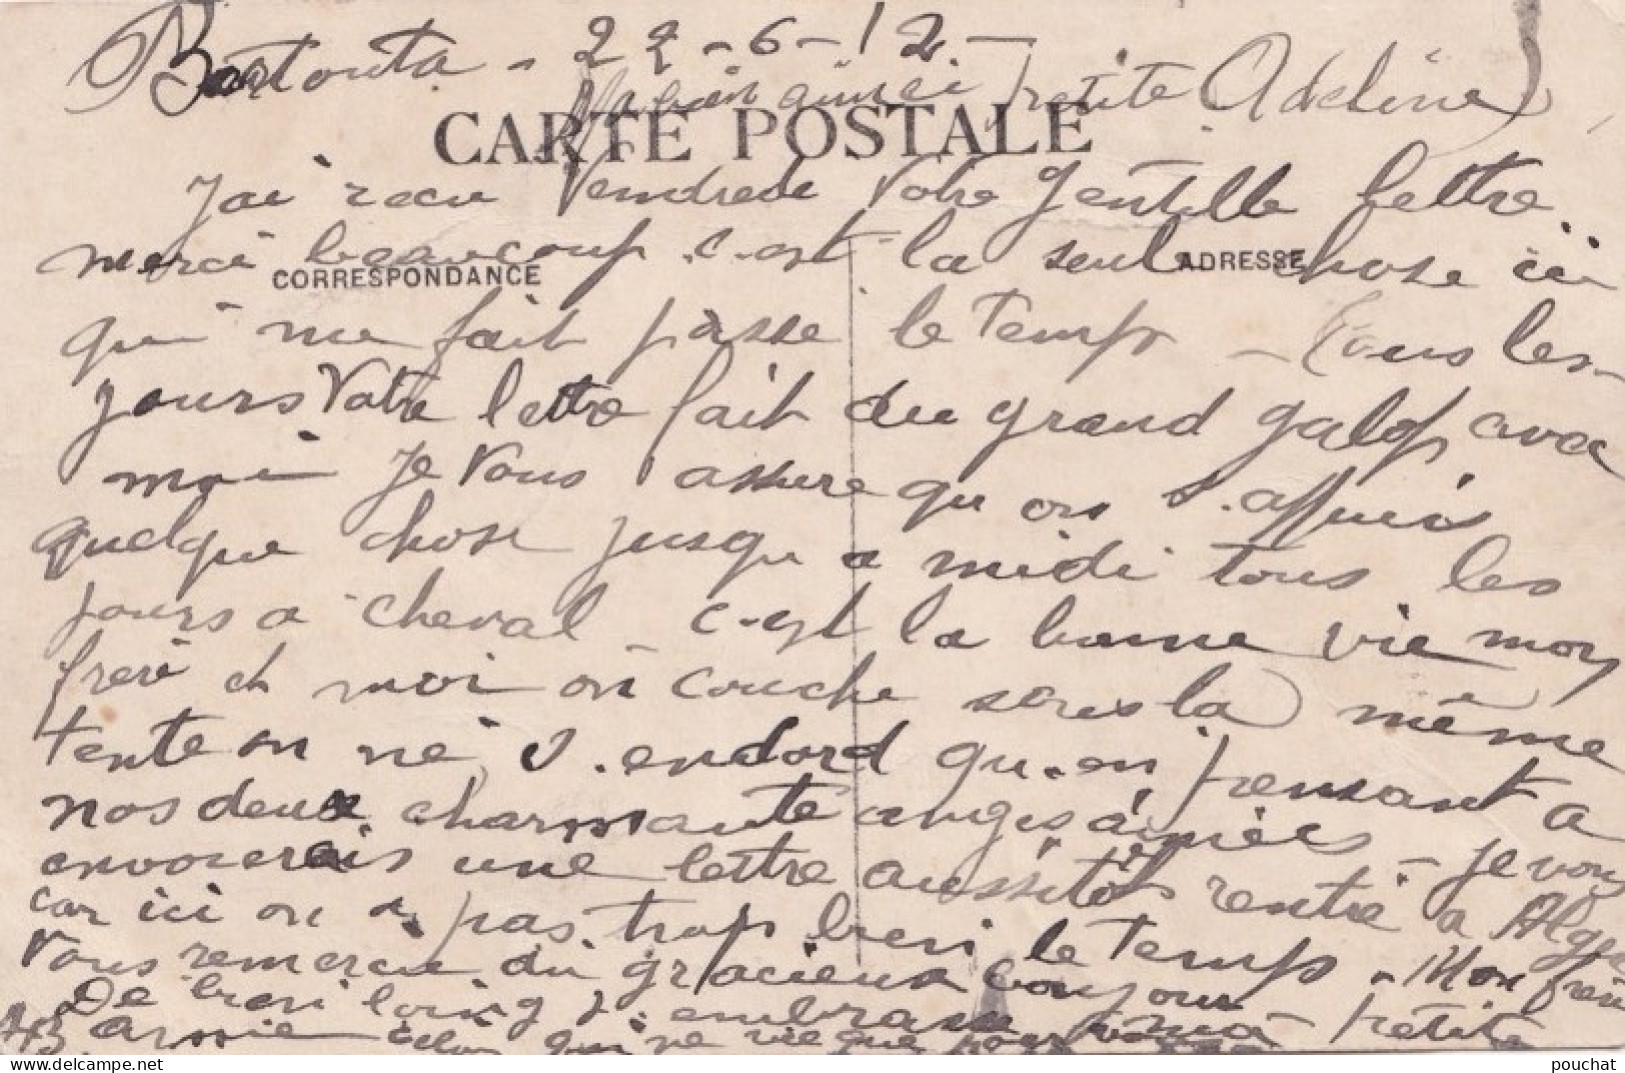 Bartouta - 22-6-12 -
Ma bien aimée petite Adeline
CARTE POSTALE
J'ai recu Vendrede Votre gentille lettre.
merci beaucoup. c-est la seule chose ici
CORRESPONDANCE
ADRESSE
qui me fait passe le temps - Tous les
jours Votre lettre fait du grand galop avec
moi je Vous assure qu on s.appuis
quelque chose jusqu a midi tous les
jours a cheval - c-est la bonne vie mon
frere et moi on couche sous la même
tente on ne s.endord qu-en pensant a
nos deux charmante anges aimées - je vous
envoserais une lettre aussitôt rentré a Alger
car ici on a pas trop bien le temps. Mon frère
Vous remercie du gracieux bonjour
De bien loin j embrasse ma petite
amie celui qui ne vie que pour vous
pouchat